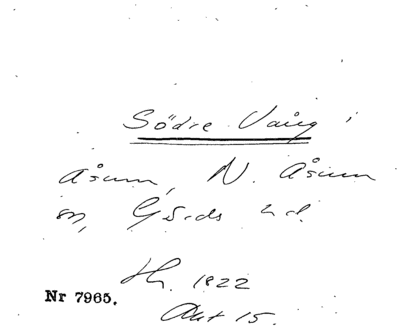 Södre Vång i
Åsum, N. Åsum
sn, Gärds hd.
Hr. 1822
Akt 15.
Nr 7965.